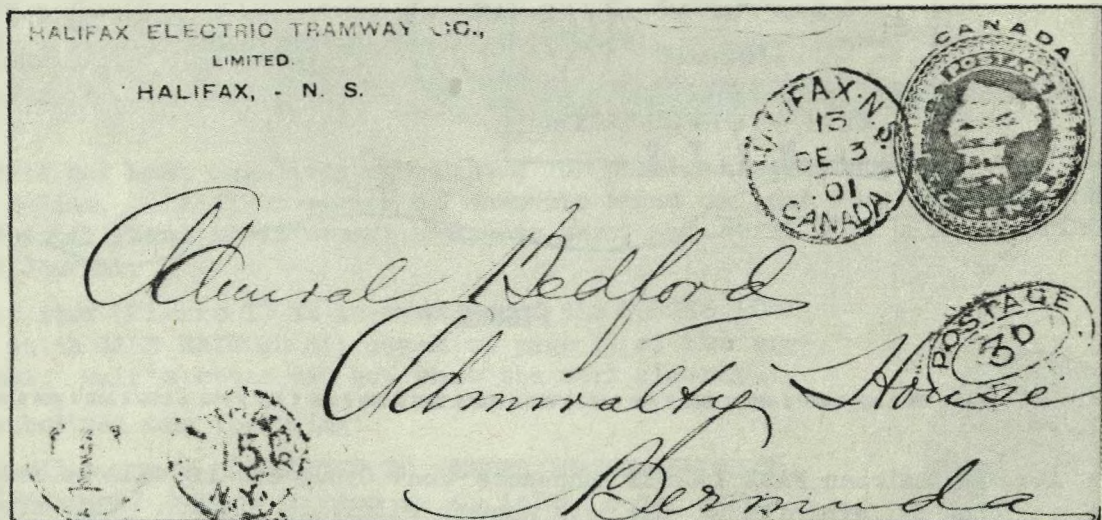 HALIFAX ELECTRIC TRAMWAY CO.,
LIMITED.
HALIFAX, - N. S.
CANADA
POSTAGE
HALIFAX·N.S.
13
DE 3
01
CANADA
Admiral Bedford
Admiralty House
Bermuda
POSTAGE
3D
5
N.Y.